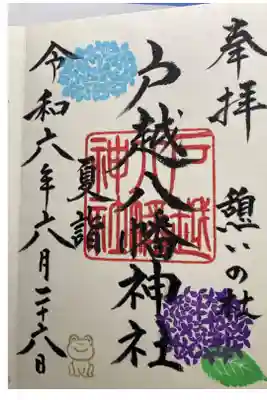 奉拝
憩いの杜
戸越八幡神社
戸越八幡神社
夏詣
令和六年六月二十八日